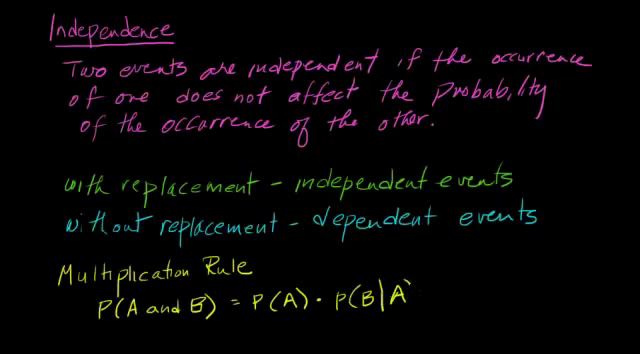 Independence
Two events are independent if the occurrence
of one does not affect the Probability
of the occurrence of the other.
with replacement - independent events
without replacement - dependent events
Multiplication Rule
P(A and B) = P(A) · P(B|A